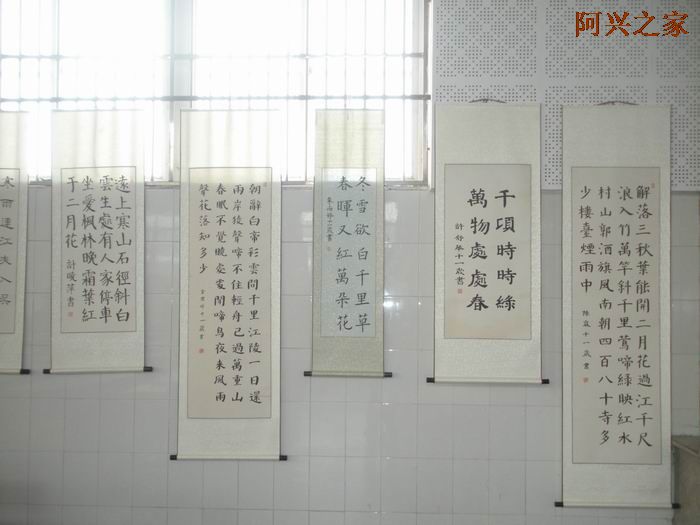 阿兴之家
解落三秋葉能開二月花過江千尺
浪入竹萬竿斜千里鶯啼綠映紅水
村山郭酒旗風南朝四百八十寺多
少樓臺煙雨中
十一歲書
千頃時時綠
萬物處處春
十一歲書
冬雪欲白千里草
春暉又紅萬朵花
朝辭白帝彩雲間千里江陵一日還
兩岸猿聲啼不住輕舟已過萬重山
春眠不覺曉處處聞啼鳥夜來風雨
聲花落知多少
十一歲書
遠上寒山石徑斜白
雲生處有人家停車
坐愛楓林晚霜葉紅
于二月花
寒雨連江夜入吳